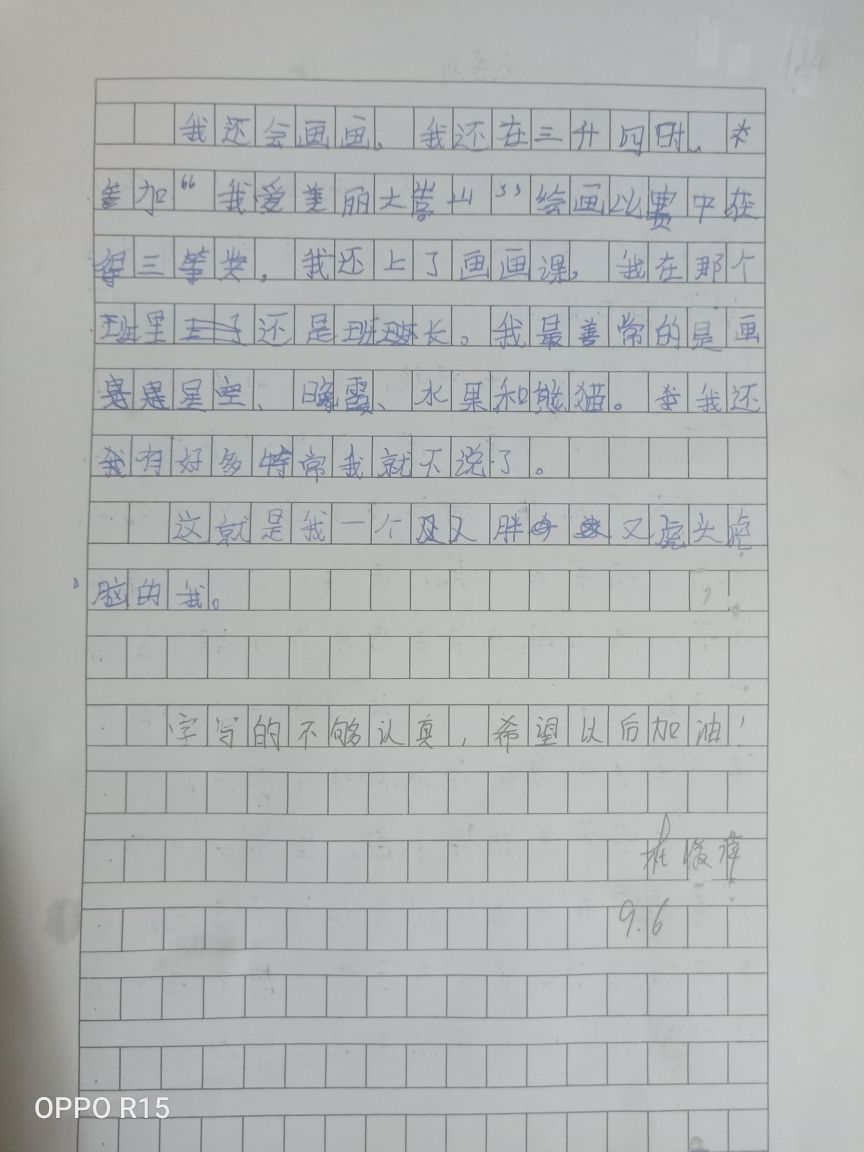 我还会画画。我还在三升四时、
参加“我爱美丽大嵩山”绘画比赛中获
得三等奖，我还上了画画课，我在那个
班里还是班班长。我最善常的是画
星空、晚霞、水果和熊猫。我还
有好多特常我就不说了。
这就是我一个又胖又虎头虎
脑的我。
字写的不够认真，希望以后加油！
9.6
OPPO R15